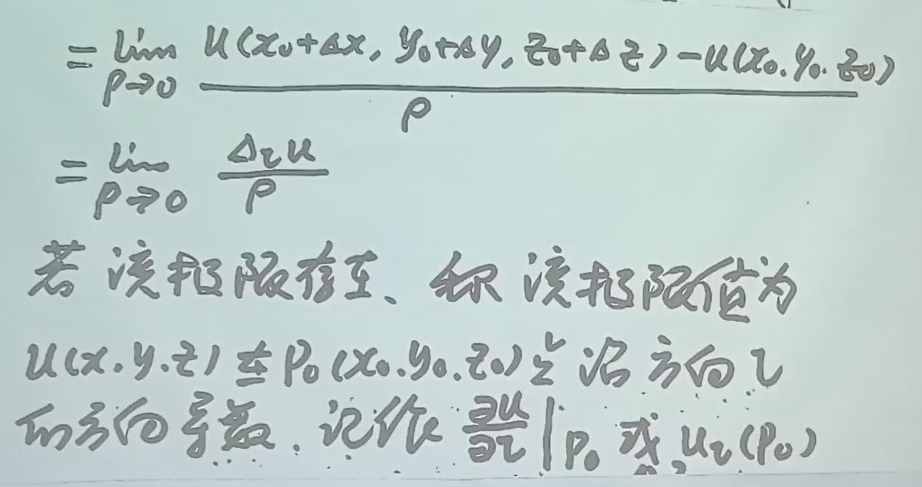 = lim ρ→0 u(x₀+Δx, y₀+Δy, z₀+Δz)-u(x₀.y₀.z₀) / ρ
= lim ρ→0 Δₗu / ρ
若该极限存在、称该极限值为
u(x.y.z)在P₀(x₀.y₀.z₀)处沿方向l
的方向导数.记作 ∂u/∂l |P₀ 或 uₗ(P₀)